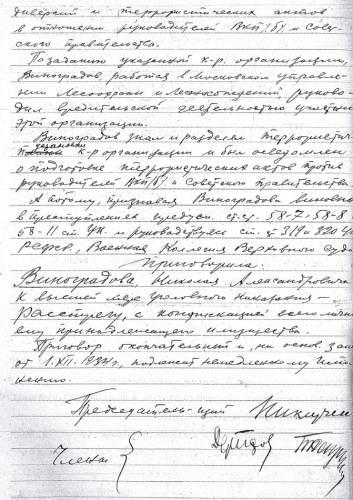 диверсий и террористических актов
в отношении руководителей ВКП/б/ и Совет-
ского правительства.
По заданию указанной к-р. организации,
Виноградов, работая в Московском управле-
нии Лесоохраны и Лесонасаждений, руково-
дил вредительской деятельностью участн.
этой организации.
Виноградов знал и разделял террористич.
установки к-р организации и был осведомлен
о подготовке террористических актов против
руководителей ВКП/б/ и Советского правительства
А потому, признавая Виноградова виновным
в преступлениях предусм. ст.ст. 58-7, 58-8
58-11 ст. УК. и руководствуясь ст. ст 319 и 320 УПК
РСФСР, Военная Коллегия Верховного Суда
Приговорила:
Виноградова, Николая Александровича
к высшей мере уголовного наказания –
расстрелу, с конфискацией всего лично
ему принадлежащего имущества.
Приговор окончательный и, на основ. зак.
от 1.XII.1934г., подлежит немедленному испол-
нению.
Председатель-щий
Члены